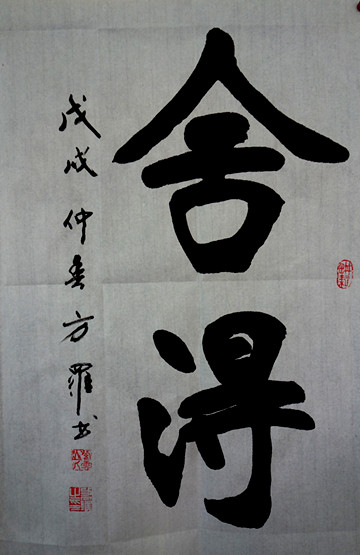 舍得
戊戌仲春方羅书